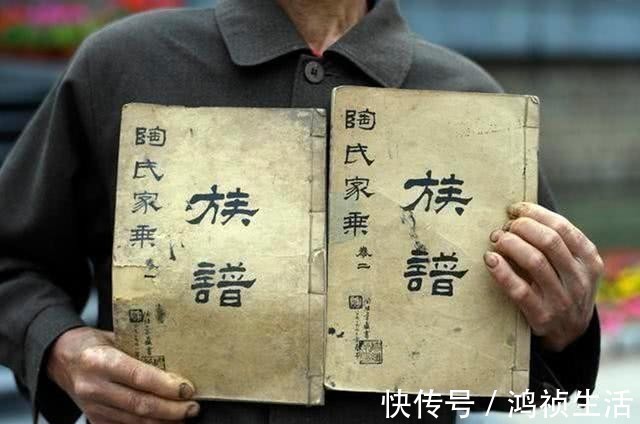 陶氏家乗卷一
族譜
陶氏家乗卷二
族譜
快传号 / 鸿祯生活